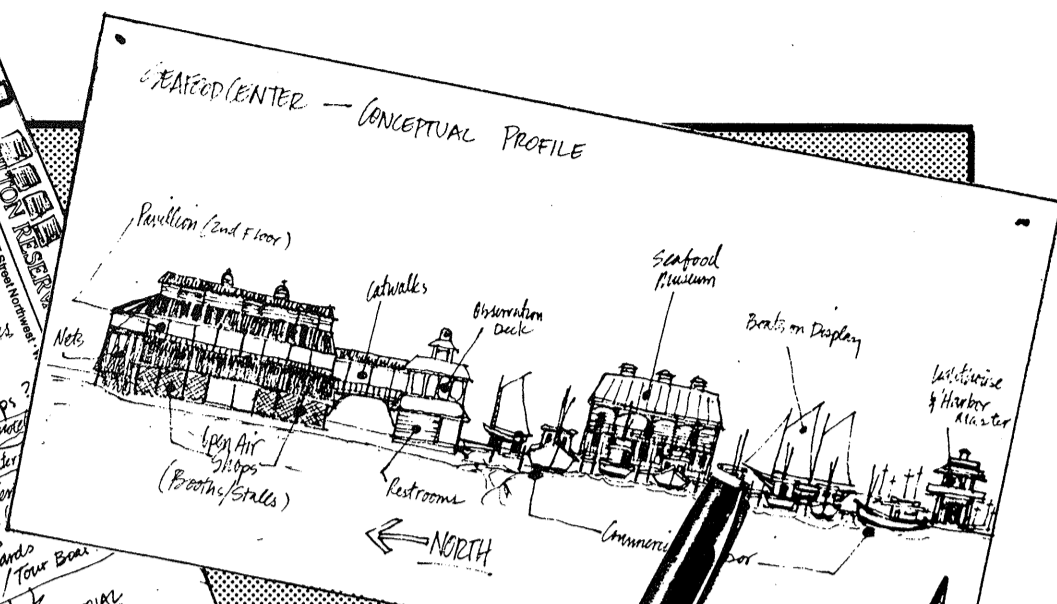 SEAFOOD CENTER — CONCEPTUAL PROFILE
Pavillion (2nd Floor)
Catwalks
Observation
Deck
Seafood
Museum
Boats on Display
& Harbor
Nets
Open Air
Shops
(Booths/Stalls)
Restrooms
NORTH
Street Northwest
/ Tour Boat